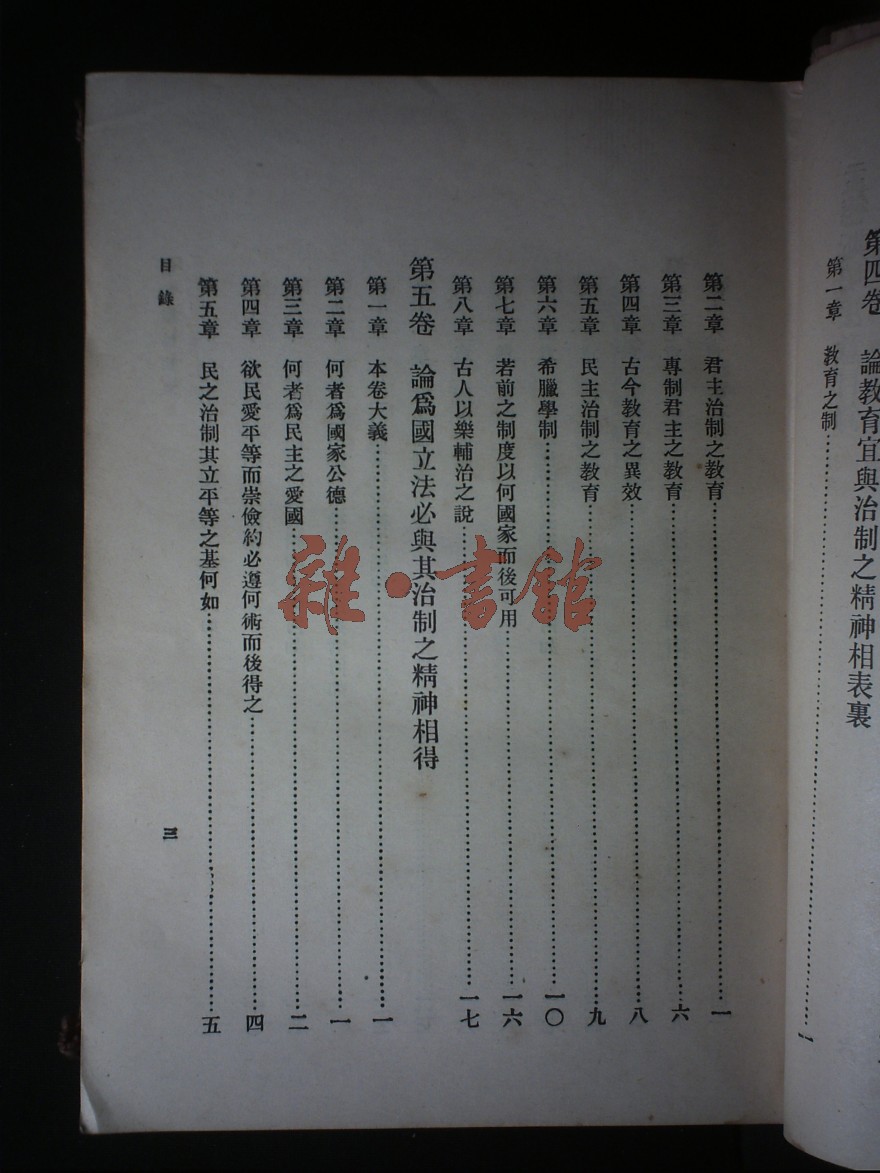 第四卷 論教育宜與治制之精神相表裏
第一章 教育之制 一
第二章 君主治制之教育 一
第三章 專制君主之教育 六
第四章 古今教育之異效 八
第五章 民主治制之教育 九
第六章 希臘學制 一〇
第七章 若前之制度以何國家而後可用 一六
第八章 古人以樂輔治之說 一七
第五卷 論爲國立法必與其治制之精神相得
第一章 本卷大義 一
第二章 何者爲國家公德 一
第三章 何者爲民主之愛國 二
第四章 欲民愛平等而崇儉約必遵何術而後得之 四
第五章 民之治制其立平等之基何如 五
目錄 三
雜·書館